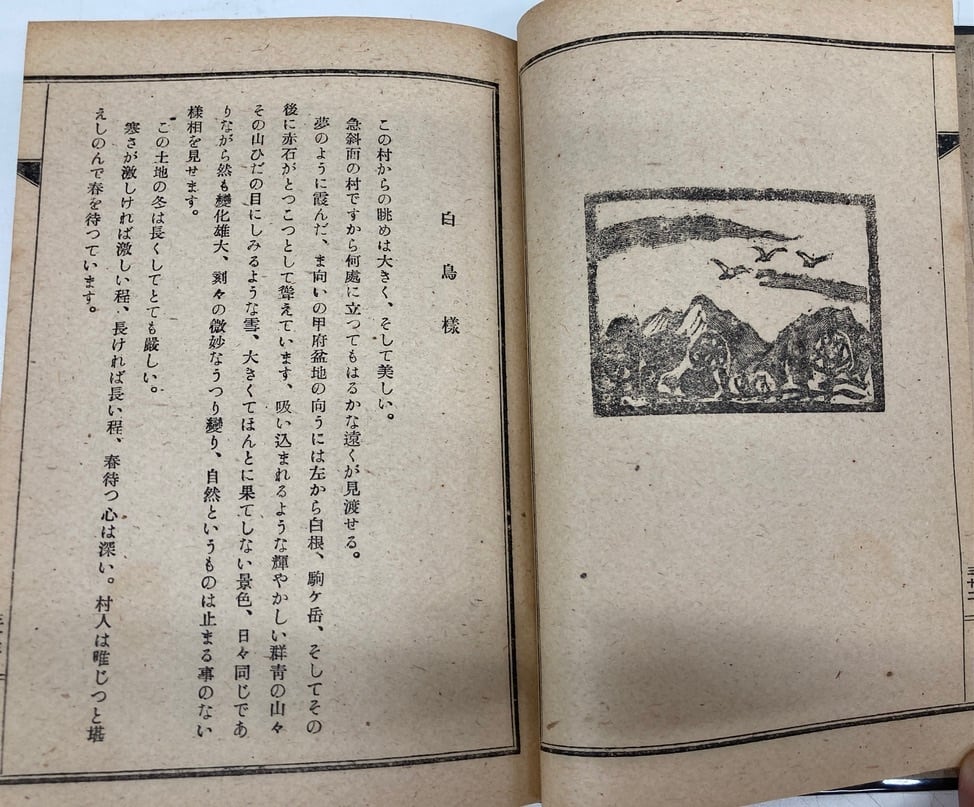 三十二
白鳥樣
この村からの眺めは大きく、そして美しい。
急斜面の村ですから何處に立つてもはるかな遠くが見渡せる。
夢のように霞んだ、ま向いの甲府盆地の向うには左から白根、駒ケ岳、そしてその
後に赤石がとつこつとして聳えています、吸い込まれるような輝やかしい群靑の山々
その山ひだの目にしみるような雪、大きくてほんとに果てしない景色、日々同じであ
りながら然も變化雄大、刻々の微妙なうつり變り、自然というものは止まる事のない
樣相を見せます。
この土地の冬は長くしてとても嚴しい。
寒さが激しければ激しい程、長ければ長い程、春待つ心は深い。村人は唯じつと堪
えしのんで春を待つています。